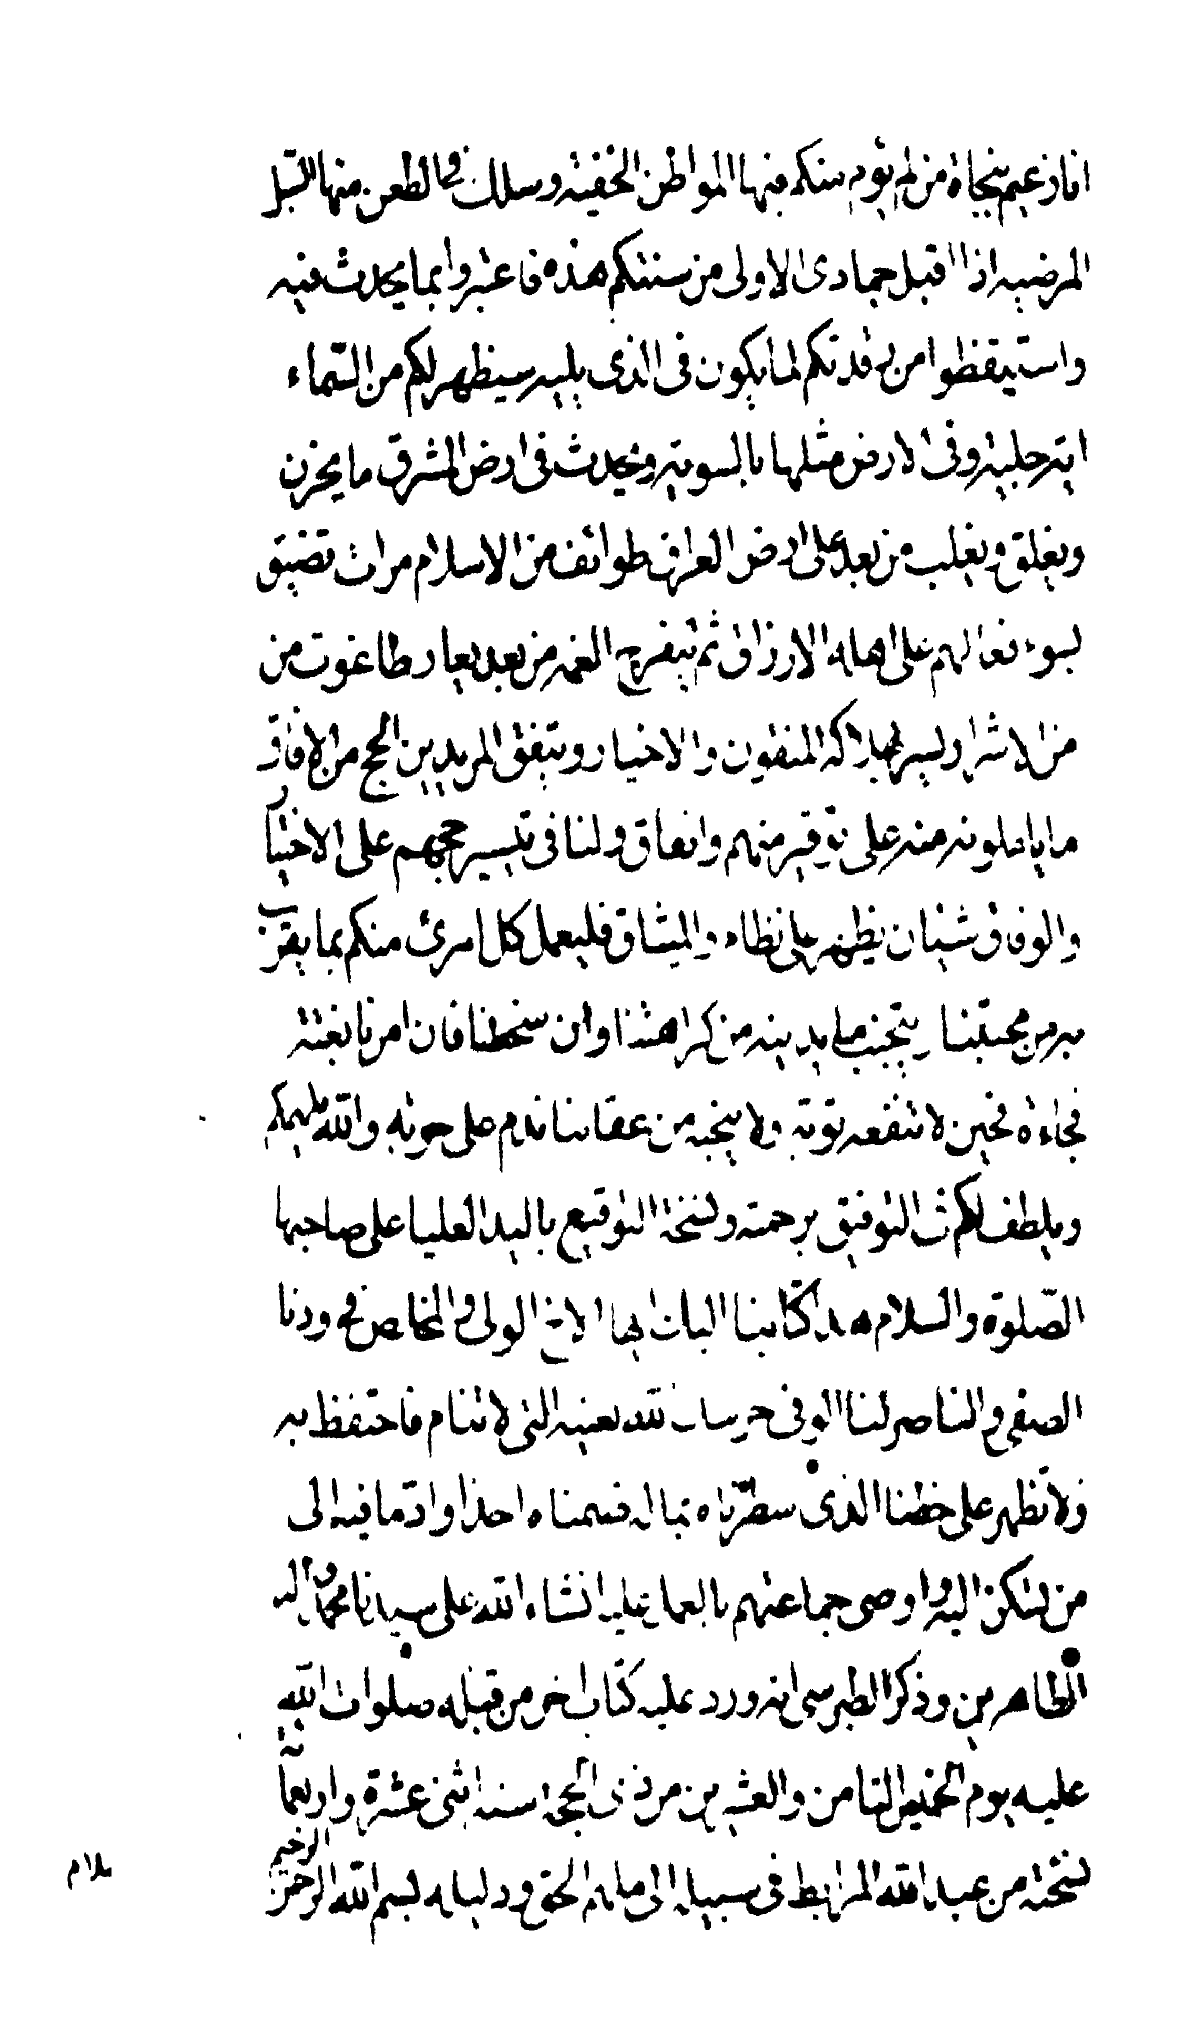 انا زعيم بنجاة من لم يؤم منكم فيها المواطن الخفية وسلك في الطعن منها السبل
المرضية اذا اقبل جمادى الاولى من سنتكم هذه فاعتبروا بما يحدث فيه
واستيقظوا من رقدتكم لما يكون في الذى يليه سيظهر لكم من السّماء
اية جلية وفى الارض مثلها بالسوية ويحدث في ارض المشرق ما يحزن
ويغلق ويغلب من بعد على ارض العراق طوائف من الاسلام مراق تضيق
بسوء فعالهم على اهله الارزاق ثم تتفرج الغمة من بعد بعار طاغوت من
من الاشرار ويسر بهلاكه المتقون والاخيار ويتفق المريدين الحج من الافاق
ما ياملونه منه على توقير منهم واتفاق ولنا في تيسير حجهم على الاختيار
والوفاق شيئان يظهر على نظام والميثاق فليعمل كل امرئ منكم بما يقرب
به من محبتنا يتجنب ما يدينه من كراهتنا وان سخطنا فان امرنا بغتة
فجاءة فحين لا تنفعه توبة ولا ينجيه من عقابنا ندم على حوبه والله يلهمكم
ويلطف لكم ش التوفيق برحمته ونسخة التوقيع باليد العليا على صاحبها
الصّلوة والسلام هذا كتابنا اليك ايها الاخ الولى والمخلص في ودنا
الصفى والناصر لنا الوفى حرسك لله بعينه التى لا تنام فاحتفظ به
ولا تظهر على خطنا الذى سطّرناه بما له ضمناه احدا واد ما فيه الى
من تسكن اليه واوصى جماعتهم بالعمل عليه انشاء الله على سيدنا محمد واله
الطاهرين وذكر الطبرسى انه ورد عليه كتاب اخر من قبله صلوات الله
عليه يوم الخميس الثامن والعشرين من ذى الحجة سنة اثنى عشرة واربعمائة
نسخته من عبد الله المرابط في سبيله الى ملهم الحق ودليله بسم الله الرحمن الرحيم
سلام